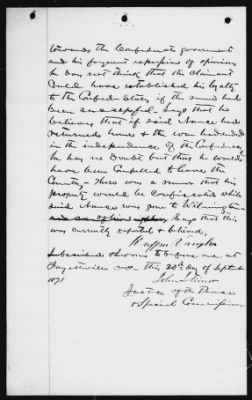 towards the Confederate government
and his frequent expressions of opinions
he does not think that the claimant
could have established his loyalty
to the Confederate States if the same had
been successful. Says that he
believes that if said Nance had
returned home & the war had ended
in the independence of the Confederacy
he has no doubt but that he would
have been compelled to leave the
Country. There was a rumor that his
property would be confiscated while
said Nance was gone to Wilmington
Says that this
was currently reported & believed,
Vaughn
Subscribed & sworn to before me at
Fayetteville this 20th day of September
1871
John
Justice of the Peace
& Special Commissioner